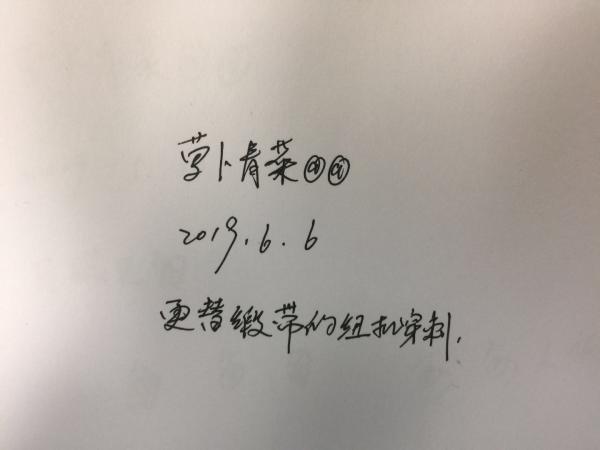 萝卜青菜
2019.6.6
更替缎带的纽扣穿刺.